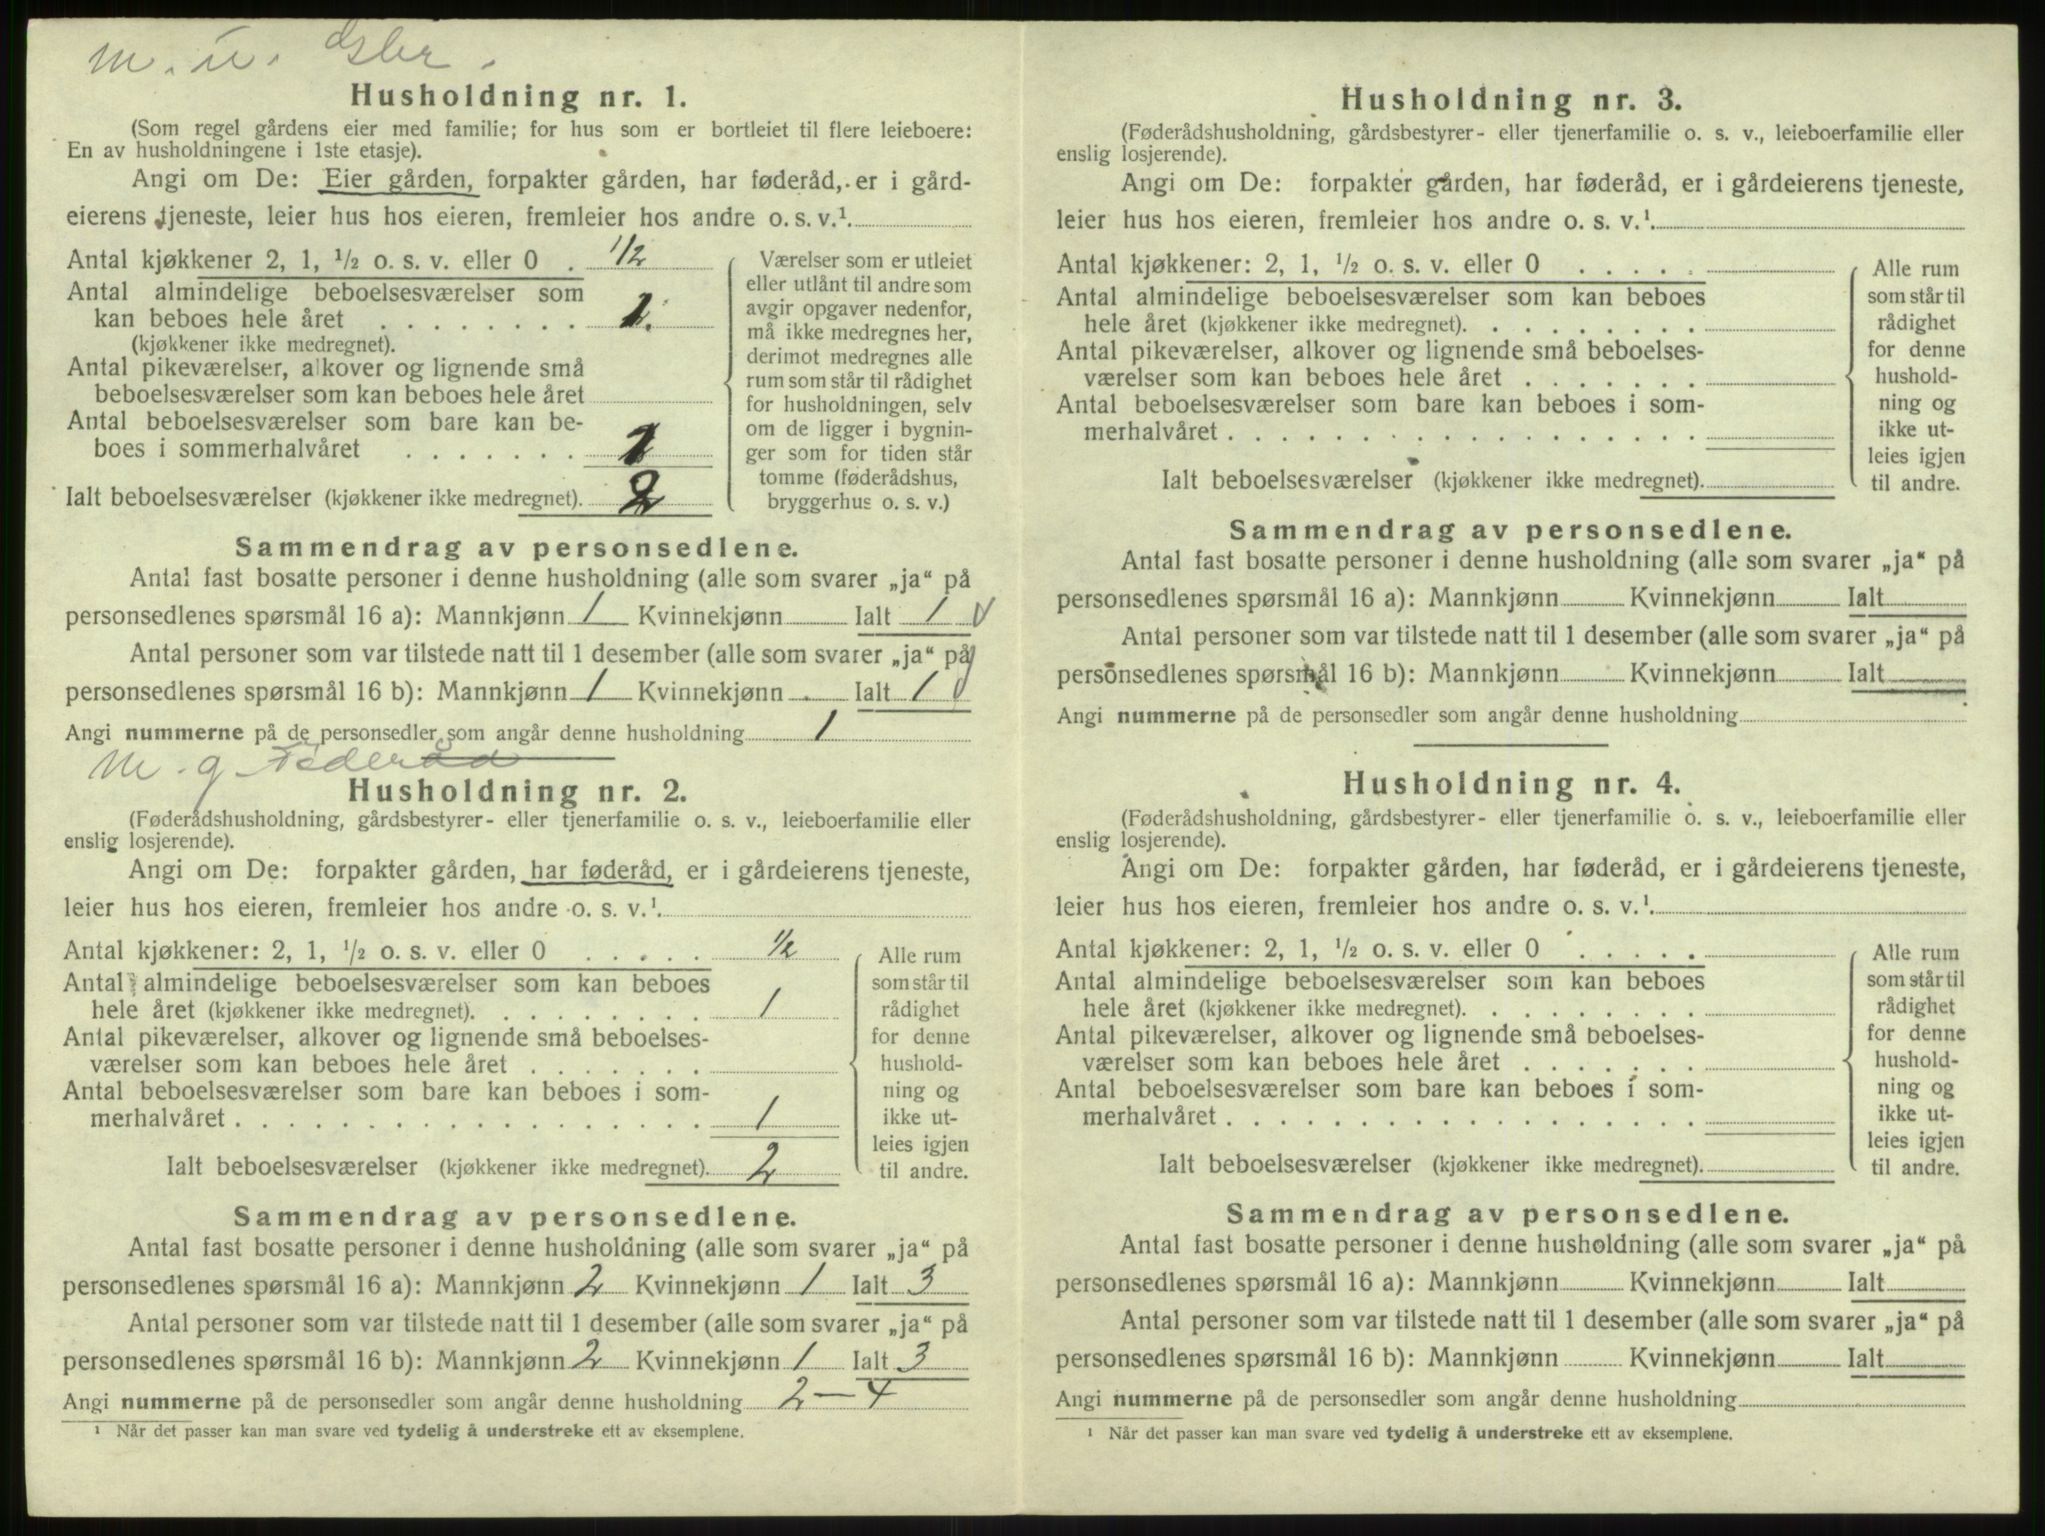 m. u. Gbr.
Husholdning nr. 1.
(Som regel gårdens eier med familie; for hus som er bortleiet til flere leieboere:
En av husholdningene i 1ste etasje).
Angi om De: Eier gården, forpakter gården, har føderåd, er i gård-
eierens tjeneste, leier hus hos eieren, fremleier hos andre o. s. v.¹
Antal kjøkkener 2, 1, ½ o. s. v. eller 0 . 1/2
Antal almindelige beboelsesværelser som
kan beboes hele året . . . . . . . . 1.
(kjøkkener ikke medregnet).
Antal pikeværelser, alkover og lignende små
beboelsesværelser som kan beboes hele året
Antal beboelsesværelser som bare kan be-
boes i sommerhalvåret . . . . . . . 1
Ialt beboelsesværelser (kjøkkener ikke medregnet). 2
Værelser som er utleiet
eller utlånt til andre som
avgir opgaver nedenfor,
må ikke medregnes her,
derimot medregnes alle
rum som står til rådighet
for husholdningen, selv
om de ligger i bygnin-
ger som for tiden står
tomme (føderådshus,
bryggerhus o. s. v.)
Sammendrag av personsedlene.
Antal fast bosatte personer i denne husholdning (alle som svarer „ja“ på
personsedlenes spørsmål 16 a): Mannkjønn 1 Kvinnekjønn Ialt 1
Antal personer som var tilstede natt til 1 desember (alle som svarer „ja“ på
personsedlenes spørsmål 16 b): Mannkjønn 1 Kvinnekjønn Ialt 1
Angi nummerne på de personsedler som angår denne husholdning 1
m. g. Føderåd
Husholdning nr. 2.
(Føderådshusholdning, gårdsbestyrer- eller tjenerfamilie o. s. v., leieboerfamilie eller
enslig losjerende).
Angi om De: forpakter gården, har føderåd, er i gårdeierens tjeneste,
leier hus hos eieren, fremleier hos andre o. s. v.¹
Antal kjøkkener: 2, 1, ½ o. s. v. eller 0 . . . . . 1/2
Antal almindelige beboelsesværelser som kan beboes
hele året (kjøkkener ikke medregnet). . . . . . . . . 1
Antal pikeværelser, alkover og lignende små beboelses-
værelser som kan beboes hele året . . . . . . .
Antal beboelsesværelser som bare kan beboes i som-
merhalvåret . . . . . . . . . . . . . . . . . . 1
Ialt beboelsesværelser (kjøkkener ikke medregnet). 2
Alle rum
som står til
rådighet
for denne
hushold-
ning og
ikke ut-
leies igjen
til andre.
Sammendrag av personsedlene.
Antal fast bosatte personer i denne husholdning (alle som svarer „ja“ på
personsedlenes spørsmål 16 a): Mannkjønn 2 Kvinnekjønn 1 Ialt 3
Antal personer som var tilstede natt til 1 desember (alle som svarer „ja“ på
personsedlenes spørsmål 16 b): Mannkjønn 2 Kvinnekjønn 1 Ialt 3
Angi nummerne på de personsedler som angår denne husholdning 2 — 4
¹ Når det passer kan man svare ved tydelig å understreke ett av eksemplene.
Husholdning nr. 3.
(Føderådshusholdning, gårdsbestyrer- eller tjenerfamilie o. s. v., leieboerfamilie eller
enslig losjerende).
Angi om De: forpakter gården, har føderåd, er i gårdeierens tjeneste,
leier hus hos eieren, fremleier hos andre o. s. v.¹
Antal kjøkkener: 2, 1, ½ o. s. v. eller 0 . . . . .
Antal almindelige beboelsesværelser som kan beboes
hele året (kjøkkener ikke medregnet). . . . . . . . .
Antal pikeværelser, alkover og lignende små beboelses-
værelser som kan beboes hele året . . . . . . .
Antal beboelsesværelser som bare kan beboes i som-
merhalvåret . . . . . . . . . . . . . . . . . .
Ialt beboelsesværelser (kjøkkener ikke medregnet).
Alle rum
som står til
rådighet
for denne
hushold-
ning og
ikke ut-
leies igjen
til andre.
Sammendrag av personsedlene.
Antal fast bosatte personer i denne husholdning (alle som svarer „ja“ på
personsedlenes spørsmål 16 a): Mannkjønn Kvinnekjønn Ialt
Antal personer som var tilstede natt til 1 desember (alle som svarer „ja“ på
personsedlenes spørsmål 16 b): Mannkjønn Kvinnekjønn Ialt
Angi nummerne på de personsedler som angår denne husholdning
Husholdning nr. 4.
(Føderådshusholdning, gårdsbestyrer- eller tjenerfamilie o. s. v., leieboerfamilie eller
enslig losjerende).
Angi om De: forpakter gården, har føderåd, er i gårdeierens tjeneste,
leier hus hos eieren, fremleier hos andre o. s. v.¹
Antal kjøkkener: 2, 1, ½ o. s. v. eller 0 . . . . .
Antal almindelige beboelsesværelser som kan beboes
hele året (kjøkkener ikke medregnet). . . . . . . . .
Antal pikeværelser, alkover og lignende små beboelses-
værelser som kan beboes hele året . . . . . . .
Antal beboelsesværelser som bare kan beboes i som-
merhalvåret . . . . . . . . . . . . . . . . . .
Ialt beboelsesværelser (kjøkkener ikke medregnet).
Alle rum
som står til
rådighet
for denne
hushold-
ning og
ikke ut-
leies igjen
til andre.
Sammendrag av personsedlene.
Antal fast bosatte personer i denne husholdning (alle som svarer „ja“ på
personsedlenes spørsmål 16 a): Mannkjønn Kvinnekjønn Ialt
Antal personer som var tilstede natt til 1 desember (alle som svarer „ja“ på
personsedlenes spørsmål 16 b): Mannkjønn Kvinnekjønn Ialt
Angi nummerne på de personsedler som angår denne husholdning
¹ Når det passer kan man svare ved tydelig å understreke ett av eksemplene.